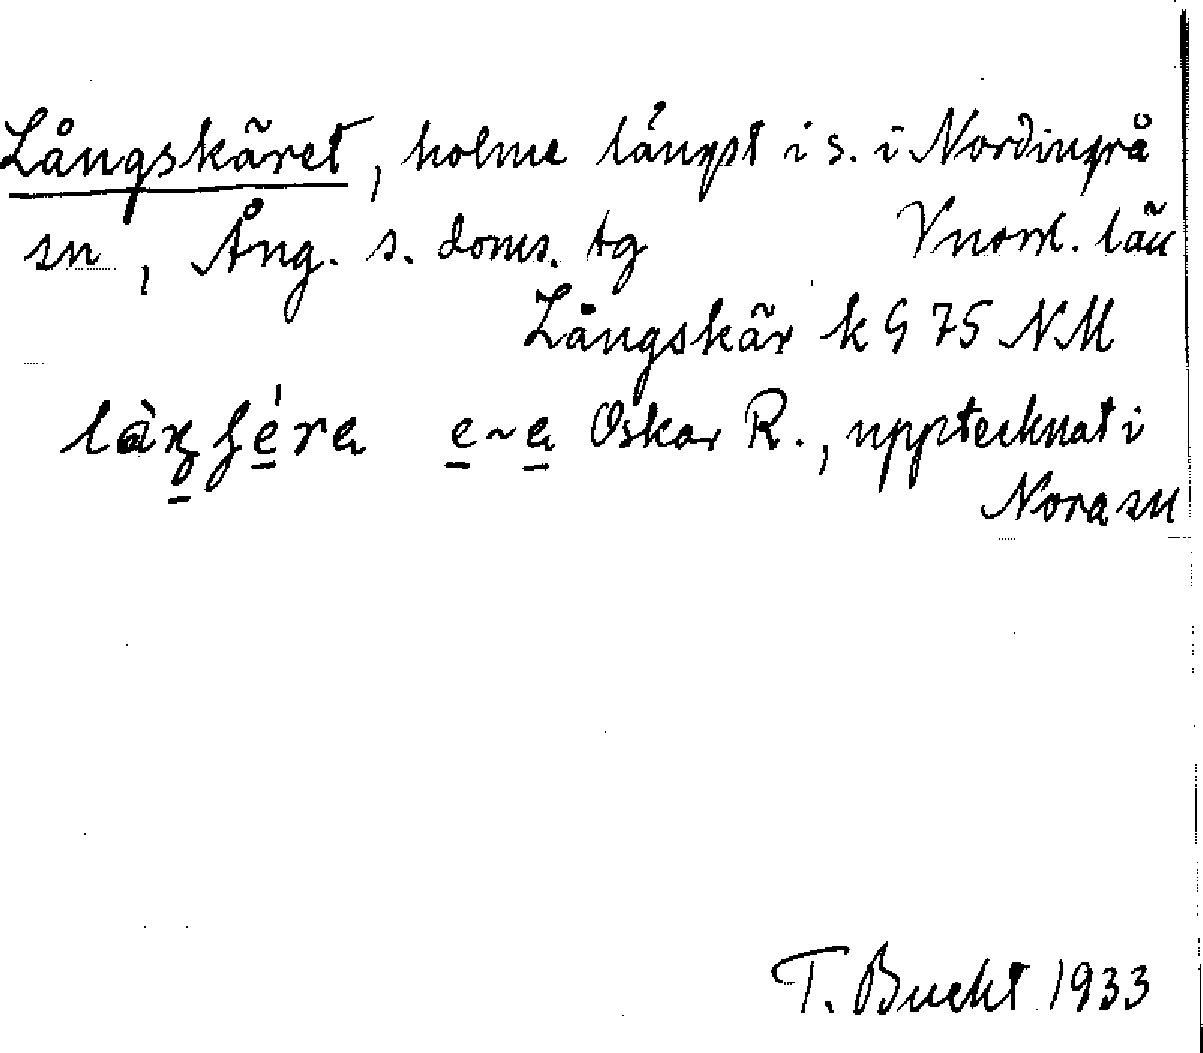 Långskäret, holme längst i s. i Nordingrå
sn, Ång. s. doms. tg Vnorrl. län
Långskär k G 75 NM
e~a Oskar R., upptecknat i
Nora sn
T. Bucht 1933